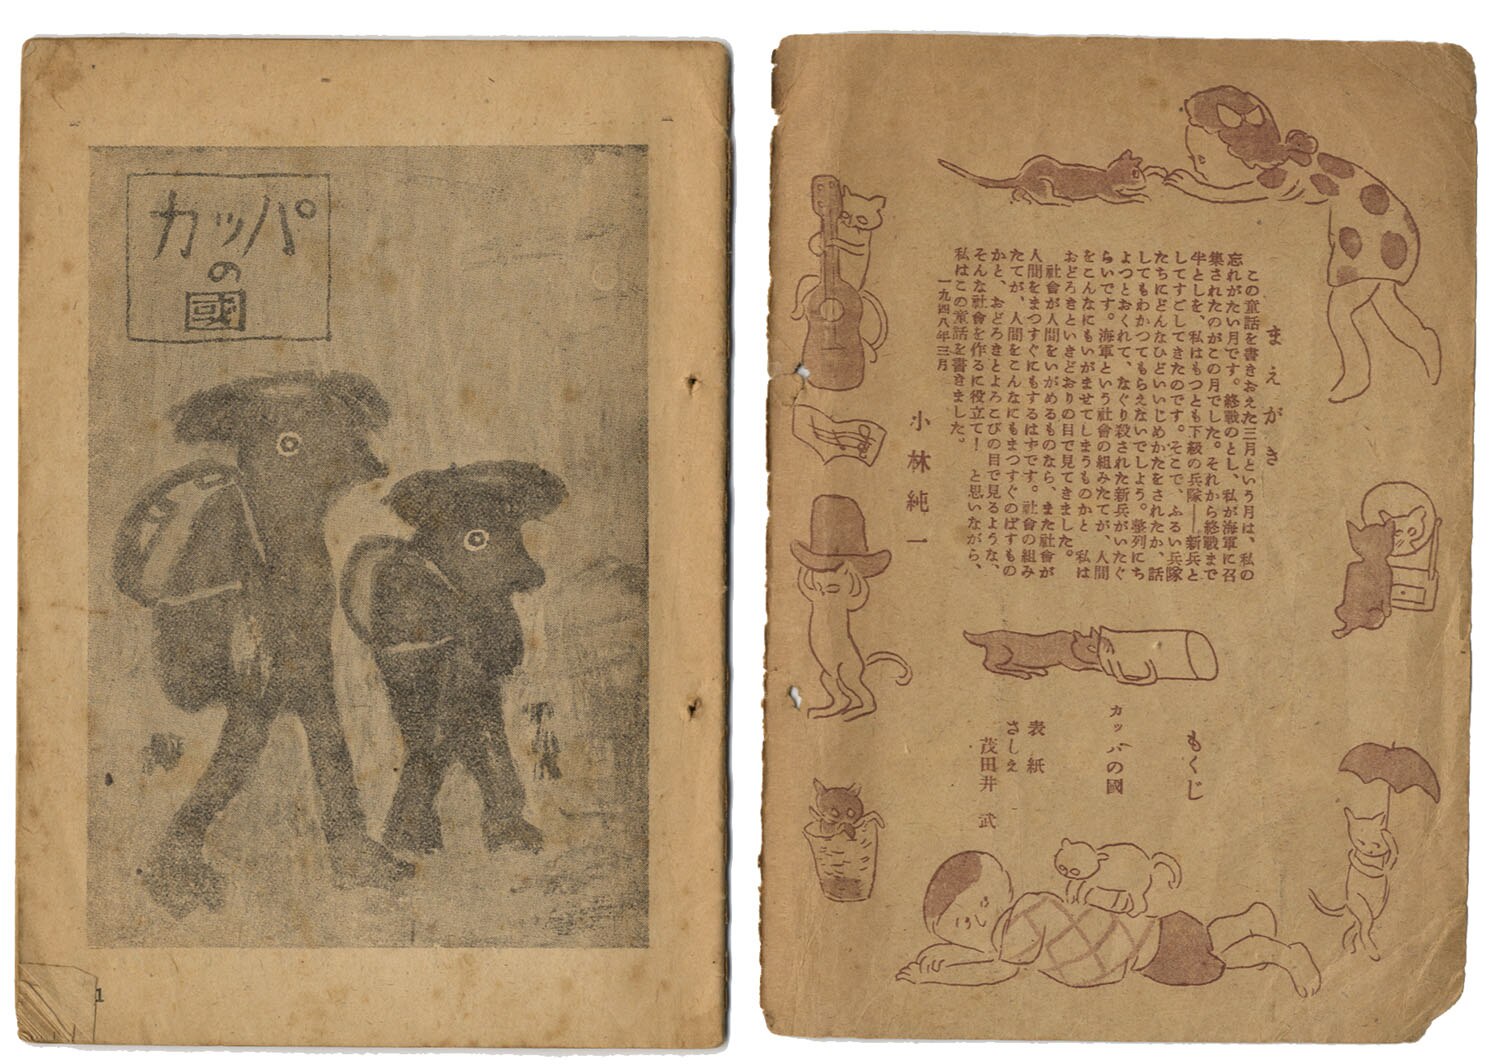 カッパ
の
國
1
まえがき
この童話を書きおえた三月という月は、私の
忘れがたい月です。終戰のとし、私が海軍に召
集されたのがこの月でした。それから終戰まで
半としを、私はもつとも下級の兵隊――新兵と
してすごしてきたのです。そこで、ふるい兵隊
たちにどんなひどいいじめかたをされたか、話
してもわかつてもらえないでしよう。整列にち
よつとおくれて、なぐり殺された新兵がいたぐ
らいです。海軍という社會の組みたてが、人間
をこんなにもいがませてしまうものかと 私は
おどろきといきどおりの目で見てきました。
社會が人間をいがめるものなら、また社會が
人間をまつすぐにもするはずです。社會の組み
たてが、人間をこんなにもまつすぐのばすもの
かと、おどろきとよろこびの目で見るような、
そんな社會を作るに役立て! と思いながら、
私はこの童話を書きました。
一九四八年三月
小林純一
もくじ
カッパの國
表紙
さしえ
茂田井 武